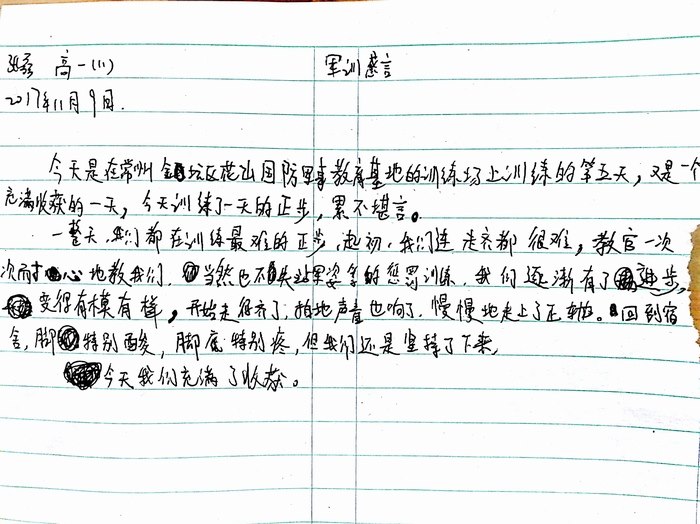 高一(1) 军训感言
2017年11月9日.
今天是在常州金坛区茅山国防军事教育基地的训练场上训练的第五天,又是一个
充满收获的一天,今天训练了一天的正步,累不堪言。
一整天,我们都在训练最难的正步,起初,我们连走齐都很难,教官一次
次耐心地教我们,当然也不失站军姿等的惩罚训练,我们逐渐有了进步,
变得有模有样,开始走得齐了,拍地声音也响了,慢慢地走上了正轨。回到宿
舍,脚特别酸,脚底特别疼,但我们还是坚持了下来,
今天我们充满了收获。